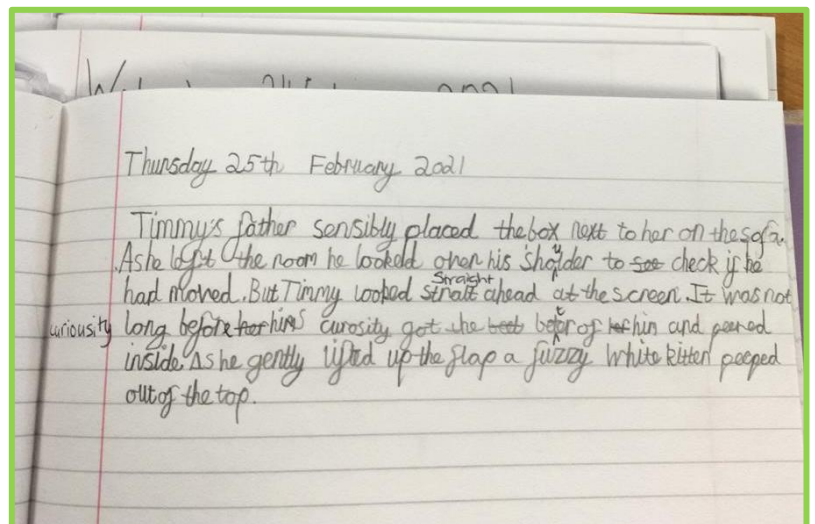 Thursday 25th February 2021
Timmy's father sensibly placed the box next to her on the sofa.
As he left the room he lookeld over his shoulder to see check if he
had moved. But Timmy looped stratt straight ahead at the screen. It was not
curiousity long before her hims curosity got the beet beter of her him and peered
inside. As he gently lifted up the flap a fuzzy white kitten peeped
out of the top.